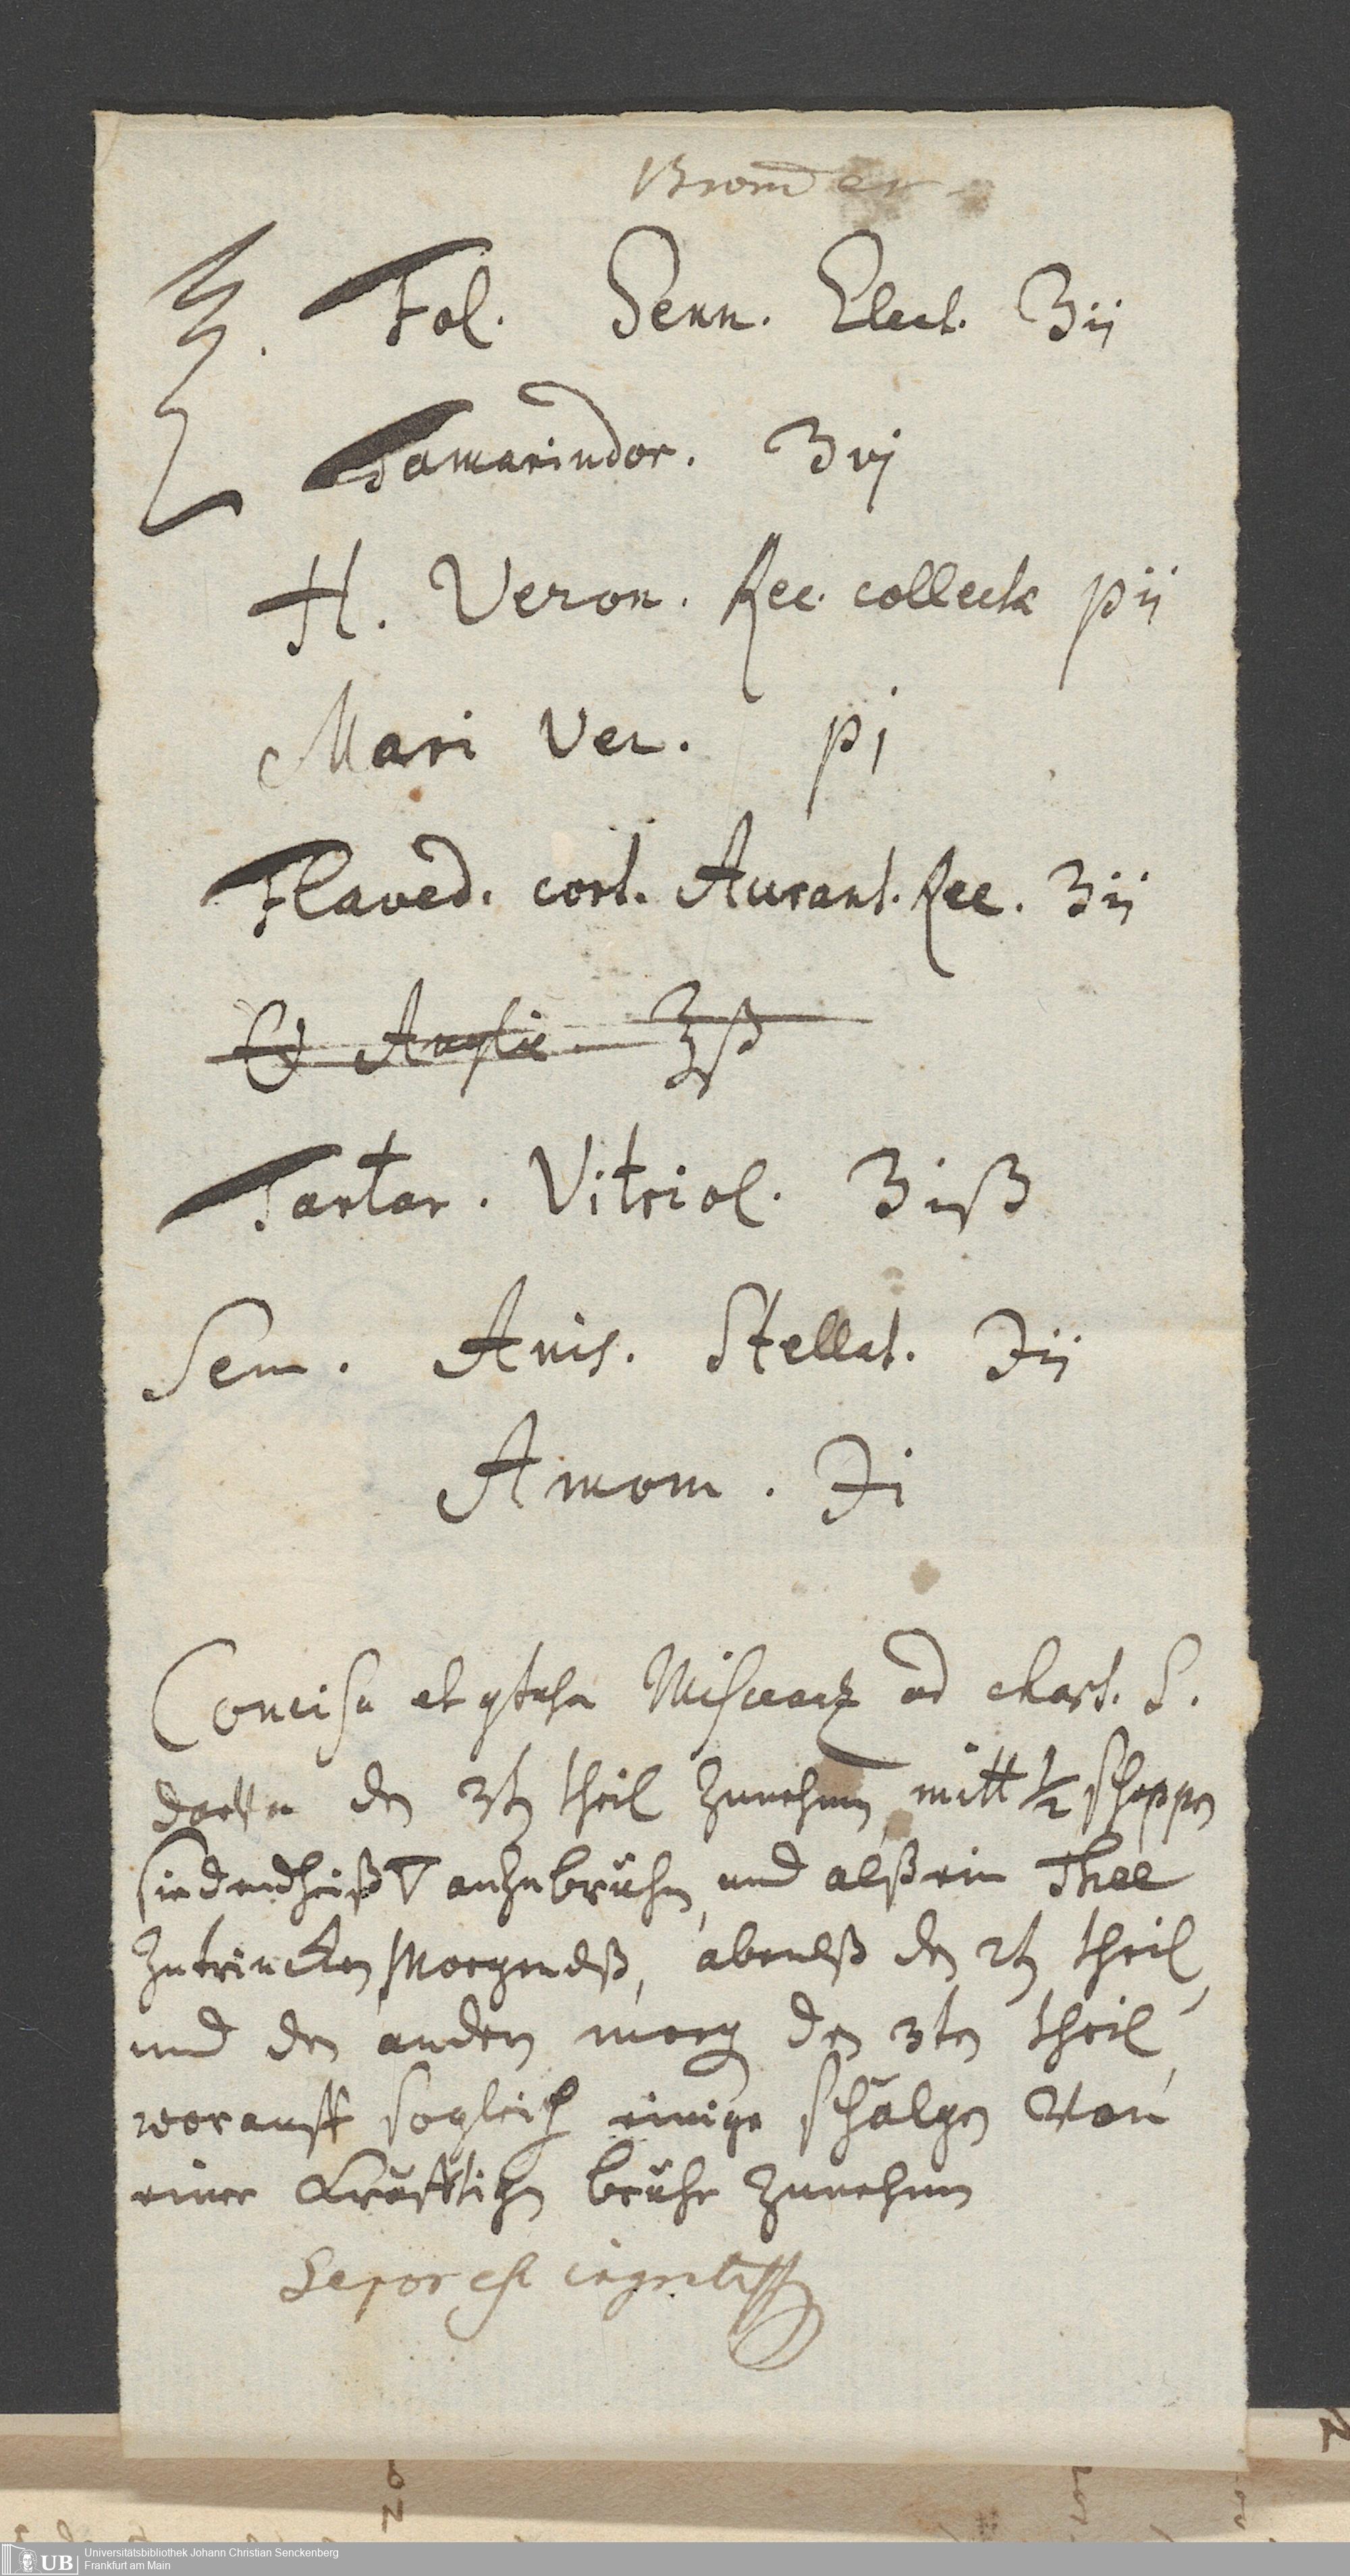 ℞. Fol. Senn. Elect. ʒij
Tamarindor. ʒvj
H. Veron. Rec. collectæ pij
Mari Ver. pj
Flaved. cort. Aurant. Rec. ʒij
Anglic. ℥ß
Tartar. Vitriol. ʒiß
Sem. Anis. Stellat. ℈ij
Amom. ℈i
Concisa et Misceant ad chart. S.
den 3t theil Zunehmen, mitt ½ schoppen
siedendheiß 🜄 anzubrühen, und alß ein Thee
zutrincken Morgendß, abentß den 2t theil,
und den andern morg den 3ten theil,
worauff sogleich einige schälgen Von
einer Kräfftigen brühe Zunehmen
Universitätsbibliothek Johann Christian Senckenberg
UB Frankfurt am Main